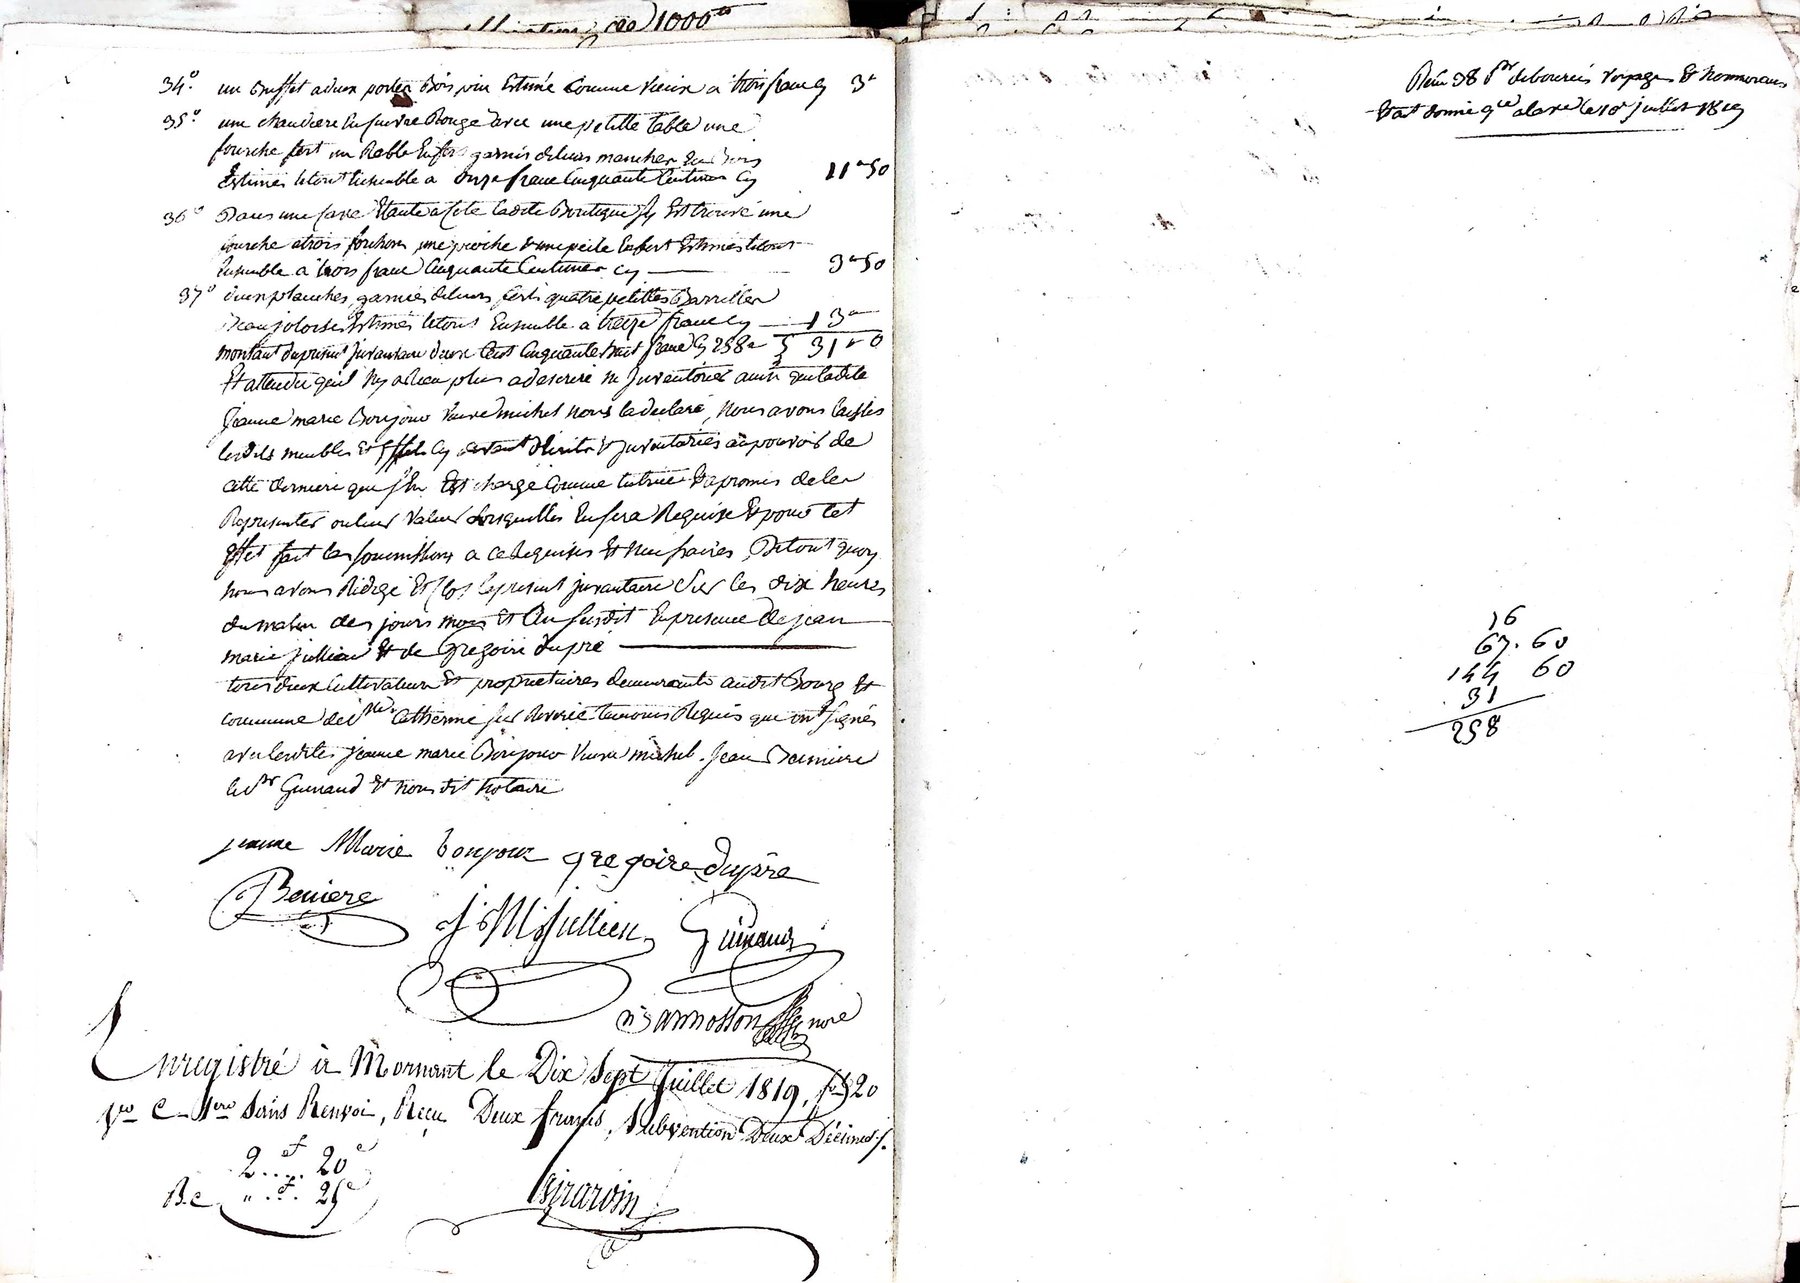 34.° un Buffet a deux portes Bois pin Estimé Comme vieux a trois francs Cy 3ᶠ
35.° une chaudiere En Cuivre Rouge avec une petitte table une
fourche fert un Rable En fert garnis de leurs manches En Bois
Estimés le tout Ensemble a onze franc Cinquante Centimes Cy 11ᶠ50
36.° Dans une Cave Etante a Coté ladite Boutique Il Est trouvé une
fourche a trois fourchons, une pioche & une pelle En fert Estimés le tout
Ensemble a trois franc Cinquante Centimes Cy 3ᶠ50
37.° deux planches, garnies de leurs ferts quatre petittes Barrilles
Beaujoloises Estimés le tout Ensemble a treize franc Cy 13ᶠ
montant du present Inventaire deux Cent Cinquante huit franc Cy 258ᶠ 31ᶠ0
Et attendu qu'il n'y a Rien plus a descrire ni Inventorier ainsi que ladite
Jeanne marie Bonjour Veuve michel nous l'a declaré, nous avons laissés
lesdits meubles Et Effets Cy devant décrits & Inventoriés au pouvoir de
cette derniere que s'En Est chargé Comme tutrice & a promis de les
Representer ou leur valeur Lorsqu'elle En sera Requise Et pour Cet
Effet fait les soumissions a ce Requises Et necessaires, De tout quoy
nous avons Redigé Et Clos le present Inventaire Sur les dix heures
du matin des jours mois Et An susdit En presence de jean
marie jullien Et de gregoire dupré
tous deux Cultivateurs Et propriétaires demeurants audit Bourg Et
commune de Ste Catherine sur Riverie temoins Requis que ont signés
avec lesdites jeanne marie Bonjour Veuve michel. Jean Beniere
le Sr Guinand Et nous dit notaire
jeanne Marie bonjour gregoire Dupré
Beniere
J. M. Jullien Guinand
Bannosson nore
Enregistré à Mornant le Dix Sept Juillet 1819, fo 20
Vo C 1ere Sans Renvoi, Reçu Deux francs, Subvention Deux Décimes.
2f 20c
B.c " f. 25c
Girardin
38 debourcés voyages Et honnoraires
Etat donné le 18 juillet 1819
16
67. 60
144 60
31
258